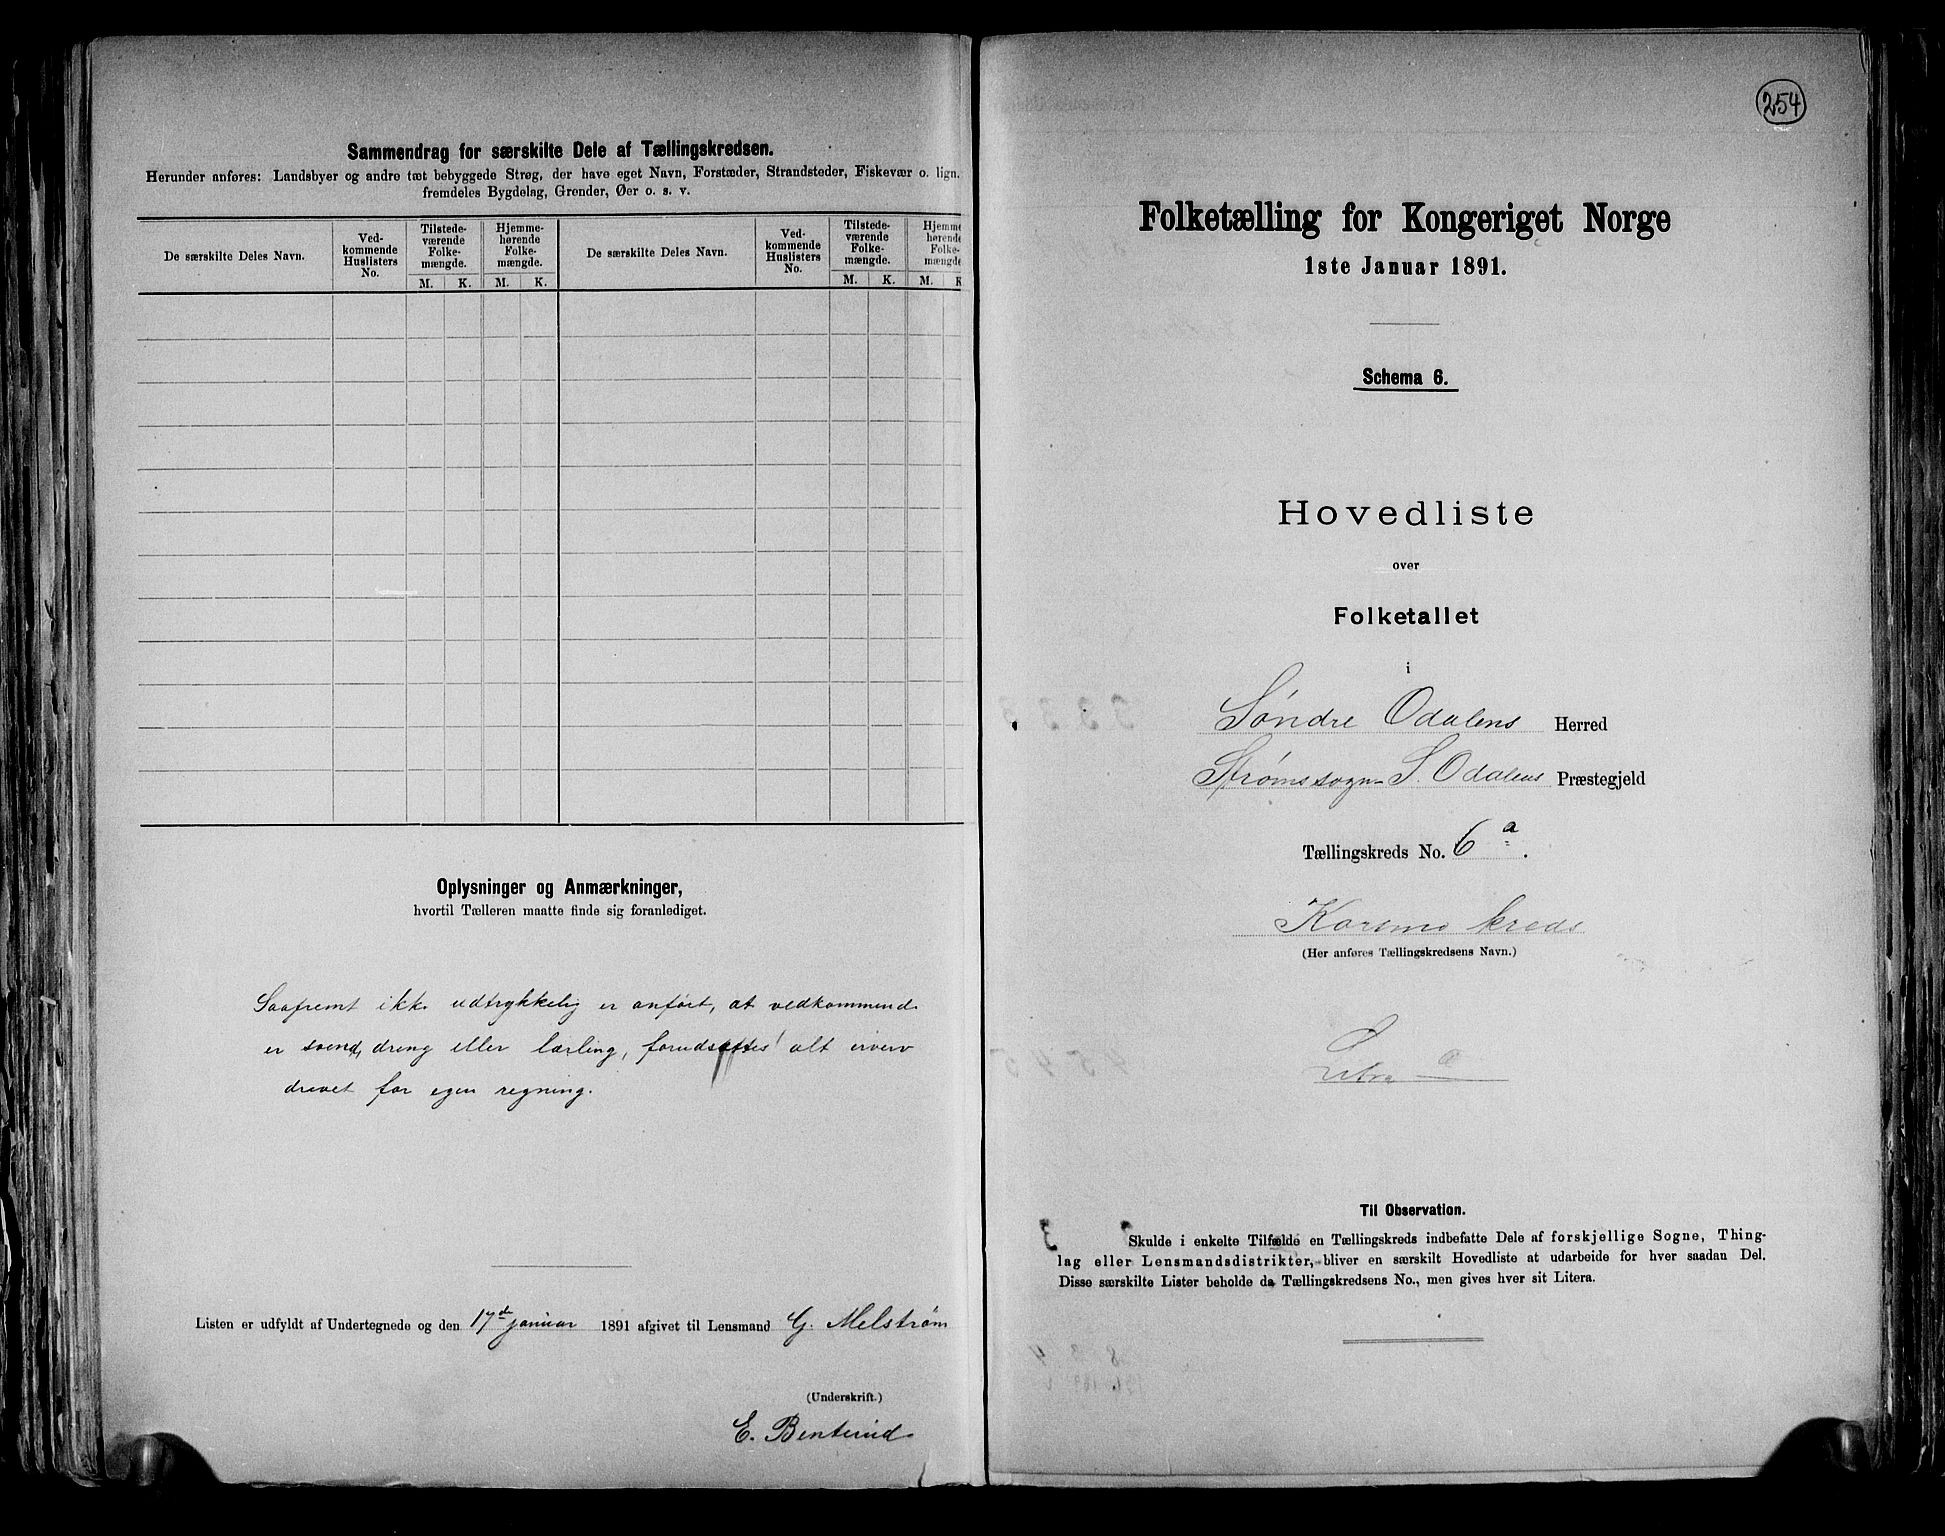 Sammendrag for særskilte Dele af Tællingskredsen.
Herunder anføres: Landsbyer og andre tæt bebyggede Strøg, der have eget Navn, Forstæder, Strandsteder, Fiskevær o. lign.
fremdeles Bygdelag, Grender, Øer o. s. v.
De særskilte Deles Navn.
Ved-
kommende
Huslisters
No.
Tilstede-
værende
Folke-
mængde.
Hjemme-
hørende
Folke-
mængde.
M. K. M. K.
De særskilte Deles Navn.
Ved-
kommende
Huslisters
No.
Tilstede-
værende
Folke-
mængde.
Hjemme
hørende
Folke-
mængde
M. K. M. K
Oplysninger og Anmærkninger,
hvortil Tælleren maatte finde sig foranlediget.
Saafremt ikke udtrykkelig er anført, at vedkommende
er svend, dreng eller lærling, forudsættes alt erverv
drevet for egen regning.
Listen er udfyldt af Undertegnede og den 17de januar 1891 afgivet til Lensmand G. Melstrøm
(Underskrift.)
E. Benterud
254
Folketælling for Kongeriget Norge
1ste Januar 1891.
Schema 6.
Hovedliste
over
Folketallet
i
Søndre Odalens Herred
Strømssogn S. Odalens Præstegjeld
Tællingskreds No. 6 a.
Korsmo kreds
(Her anføres Tællingskredsens Navn.)
Litra a
Til Observation.
Skulde i enkelte Tilfælde en Tællingskreds indbefatte Dele af forskjellige Sogne, Thing-
lag eller Lensmandsdistrikter, bliver en særskilt Hovedliste at udarbeide for hver saadan Del.
Disse særskilte Lister beholde da Tællingskredsens No., men gives hver sit Litera.